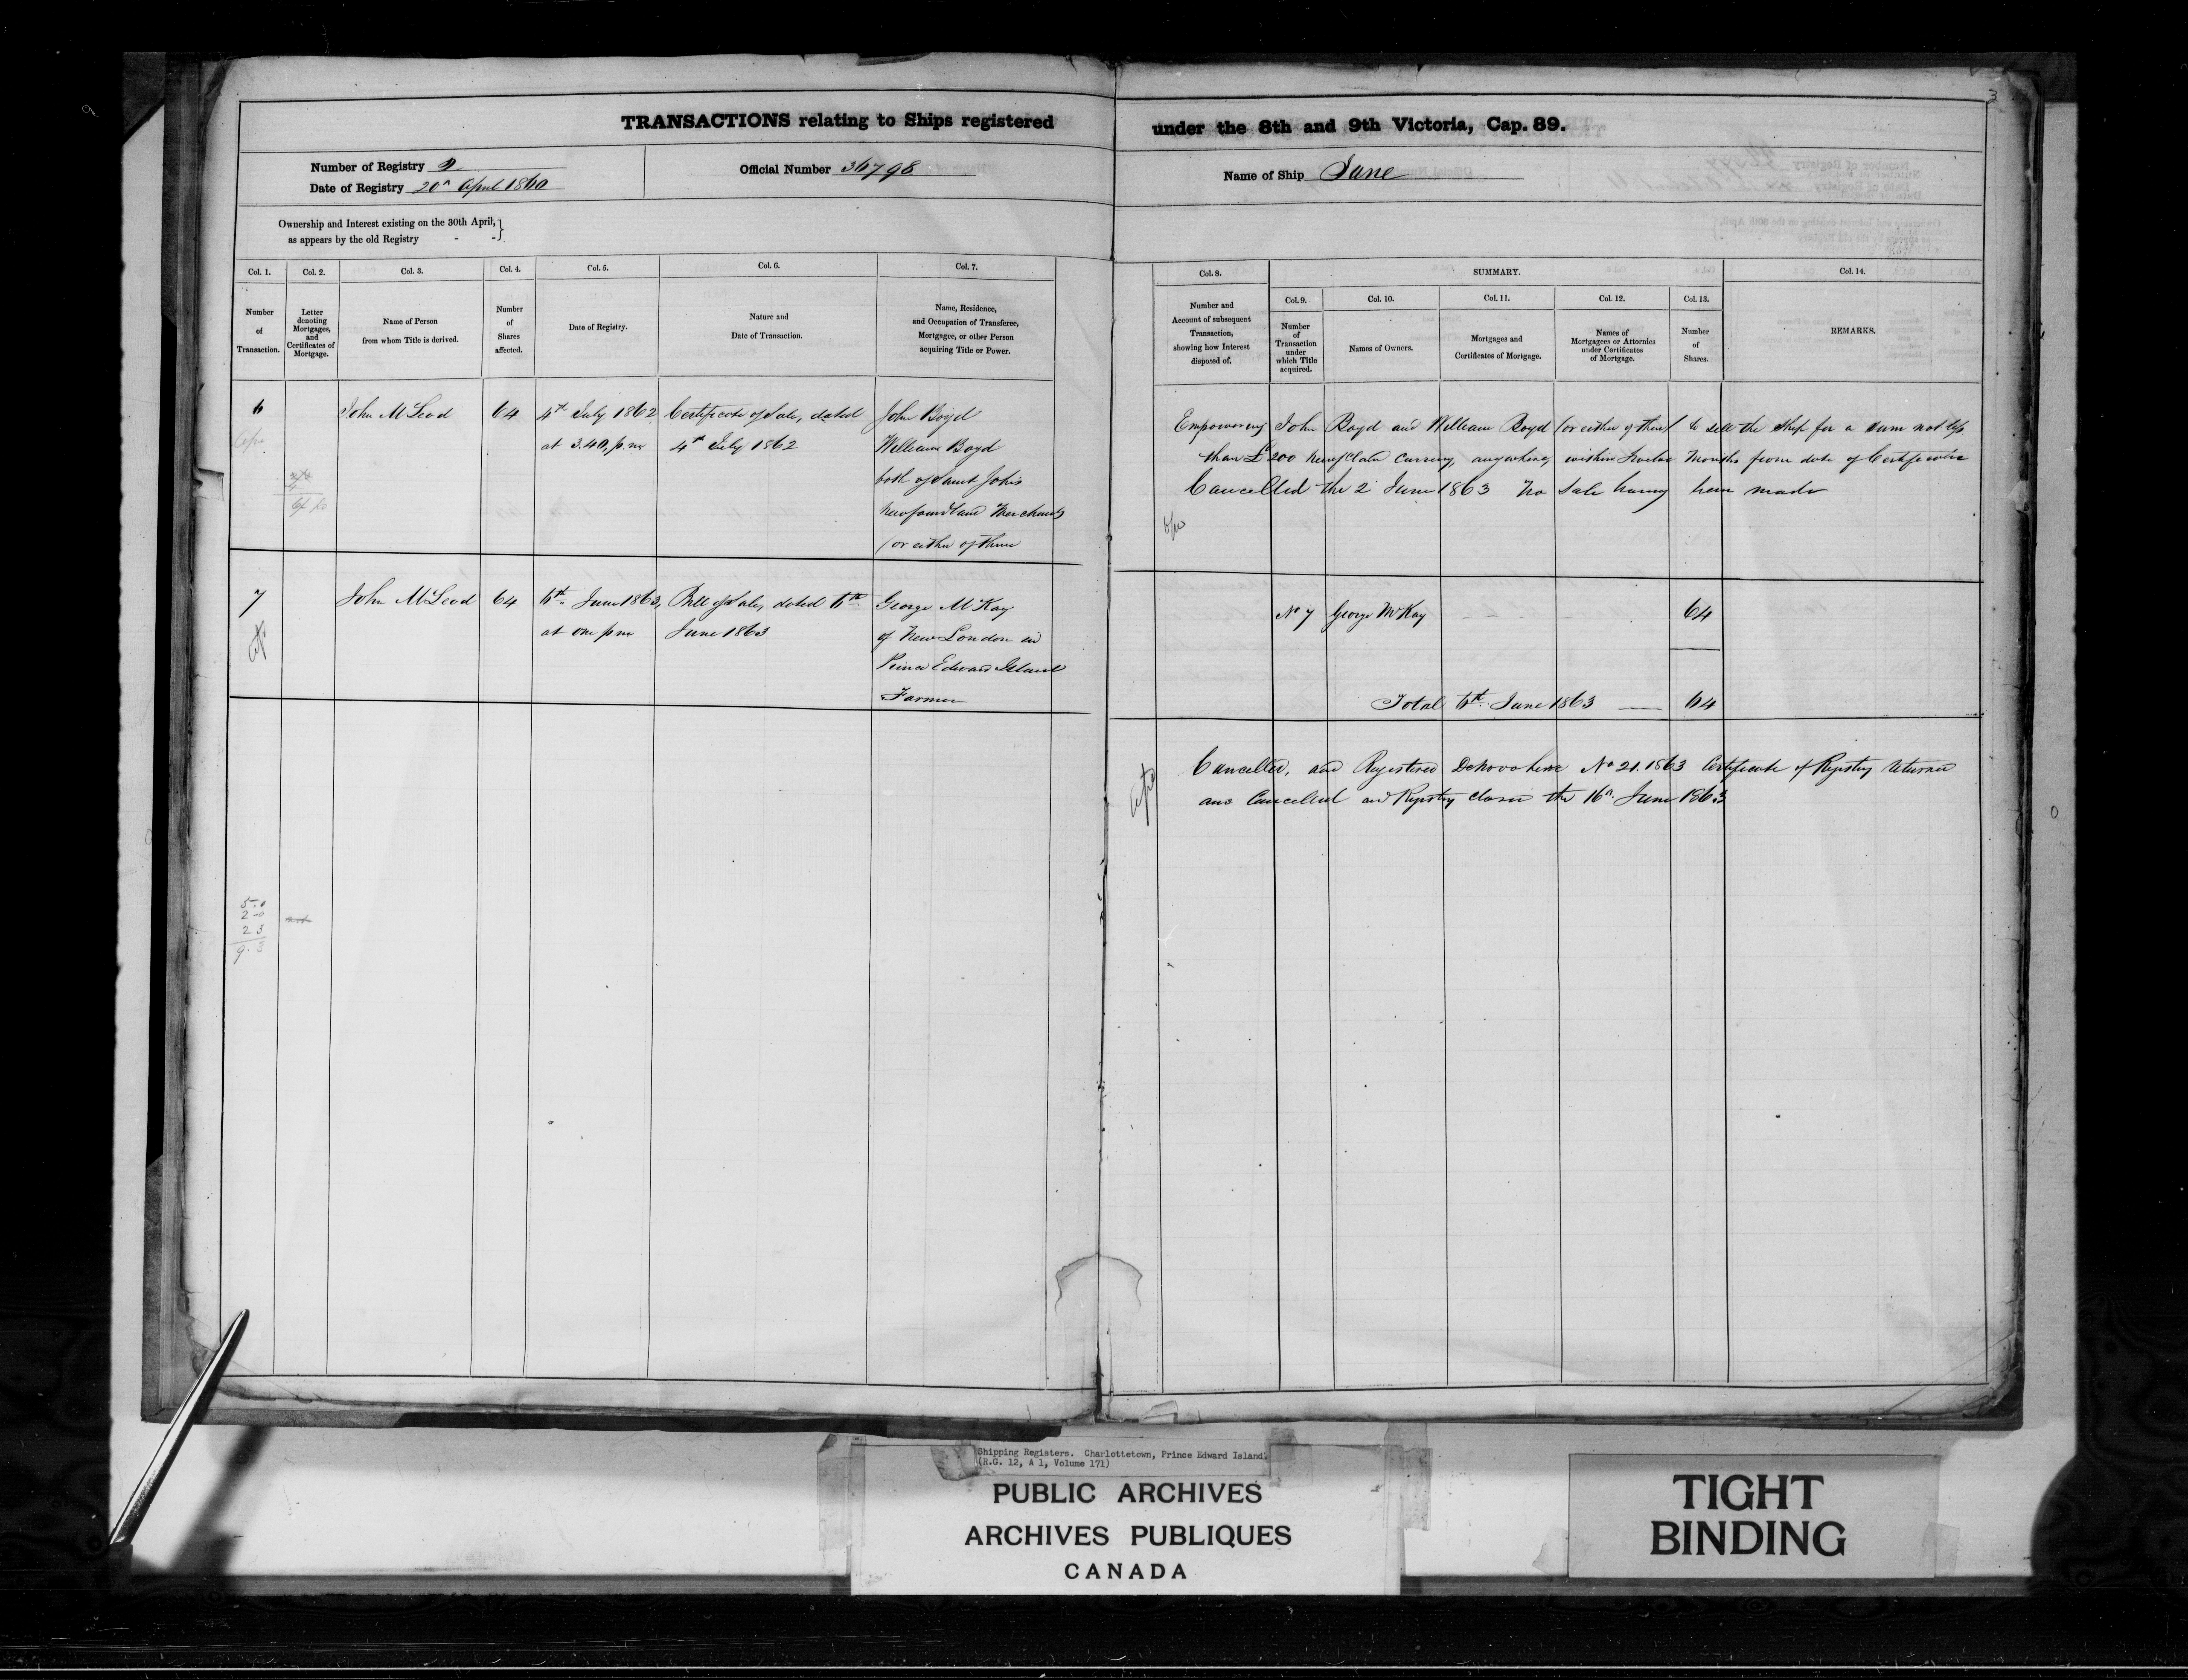 3
TRANSACTIONS relating to Ships registered under the 8th and 9th Victoria, Cap. 89.
Number of Registry 2
Date of Registry 20th April 1860
Official Number 36798
Name of Ship Jane
Ownership and Interest existing on the 30th April, }
as appears by the old Registry - - }
Col. 1.
Number
of
Transaction.
Col. 2.
Letter
denoting
Mortgages,
and
Certificates of
Mortgage.
Col. 3.
Name of Person
from whom Title is derived.
Col. 4.
Number
of
Shares
affected.
Col. 5.
Date of Registry.
Col. 6.
Nature and
Date of Transaction.
Col. 7.
Name, Residence,
and Occupation of Transferee,
Mortgagee, or other Person
acquiring Title or Power.
Col. 8.
Number and
Account of subsequent
Transaction,
showing how Interest
disposed of.
SUMMARY.
Col. 9.
Number
of
Transaction
under
which Title
acquired.
Col. 10.
Names of Owners.
Col. 11.
Mortgages and
Certificates of Mortgage.
Col. 12.
Names of
Mortgagees or Attornies
under Certificates
of Mortgage.
Col. 13.
Number
of
Shares.
Col. 14.
REMARKS.
6
John McLeod
64
4th July 1862
at 3.40, p.m
Certificate of Sale, dated
4th July 1862
John Boyd
William Boyd
both of Saint John's
Newfoundland Merchants
(or either of them
Empowering John Boyd and William Boyd (or either of them) to sell the Ship for a sum not less
than £200 Newfdland Currency, anywhere, within Twelve Months from date of Certificate
Cancelled the 2 June 1863 No Sale having been made
7
John McLeod
64
6th June 1863,
at one pm
Bill of Sale, dated 6th
June 1863
George McKay
of New London in
Prince Edward Island
Farmer
No 7 George McKay - - - 64
Total 6th June 1863 — 64
Cancelled, and Registered De Novo here No 21. 1863 Certificate of Registry returned
and Cancelled and Registry closed the 16th June 1863
5.0
2-0
2 3
9.3
Shipping Registers. Charlottetown, Prince Edward Island.
(R.G. 12, A 1, Volume 171)
PUBLIC ARCHIVES
ARCHIVES PUBLIQUES
CANADA
TIGHT
BINDING